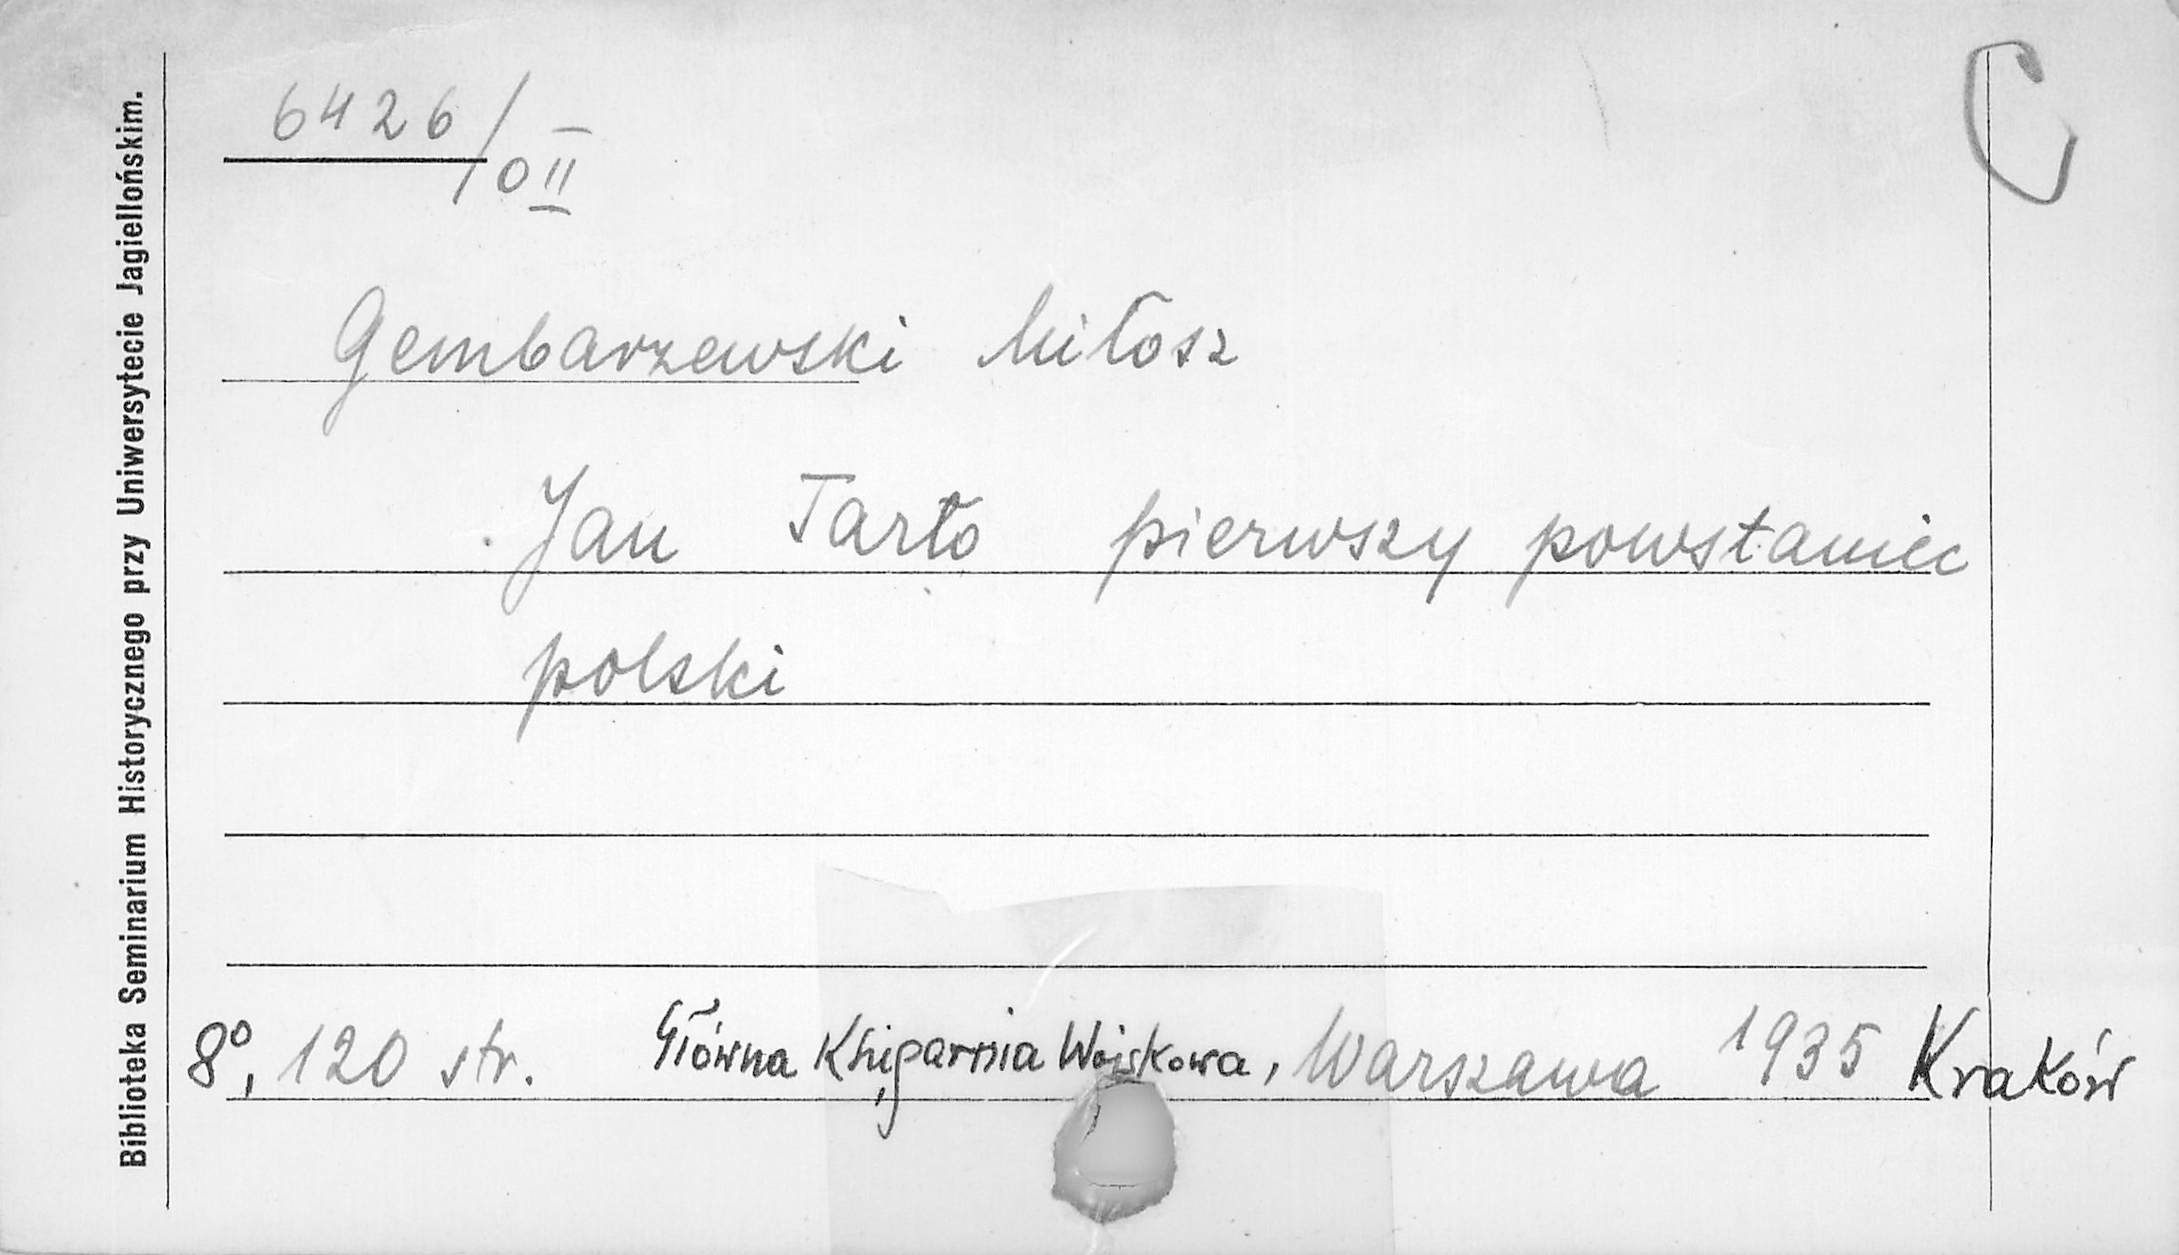 6426/0 II
C
Gembarzewski Miłosz
Jan Tarło pierwszy powstaniec
polski
8°, 120 str. Główna Księgarnia Wojskowa, Warszawa 1935 Kraków
Biblioteka Seminarium Historycznego przy Uniwersytecie Jagiellońskim.